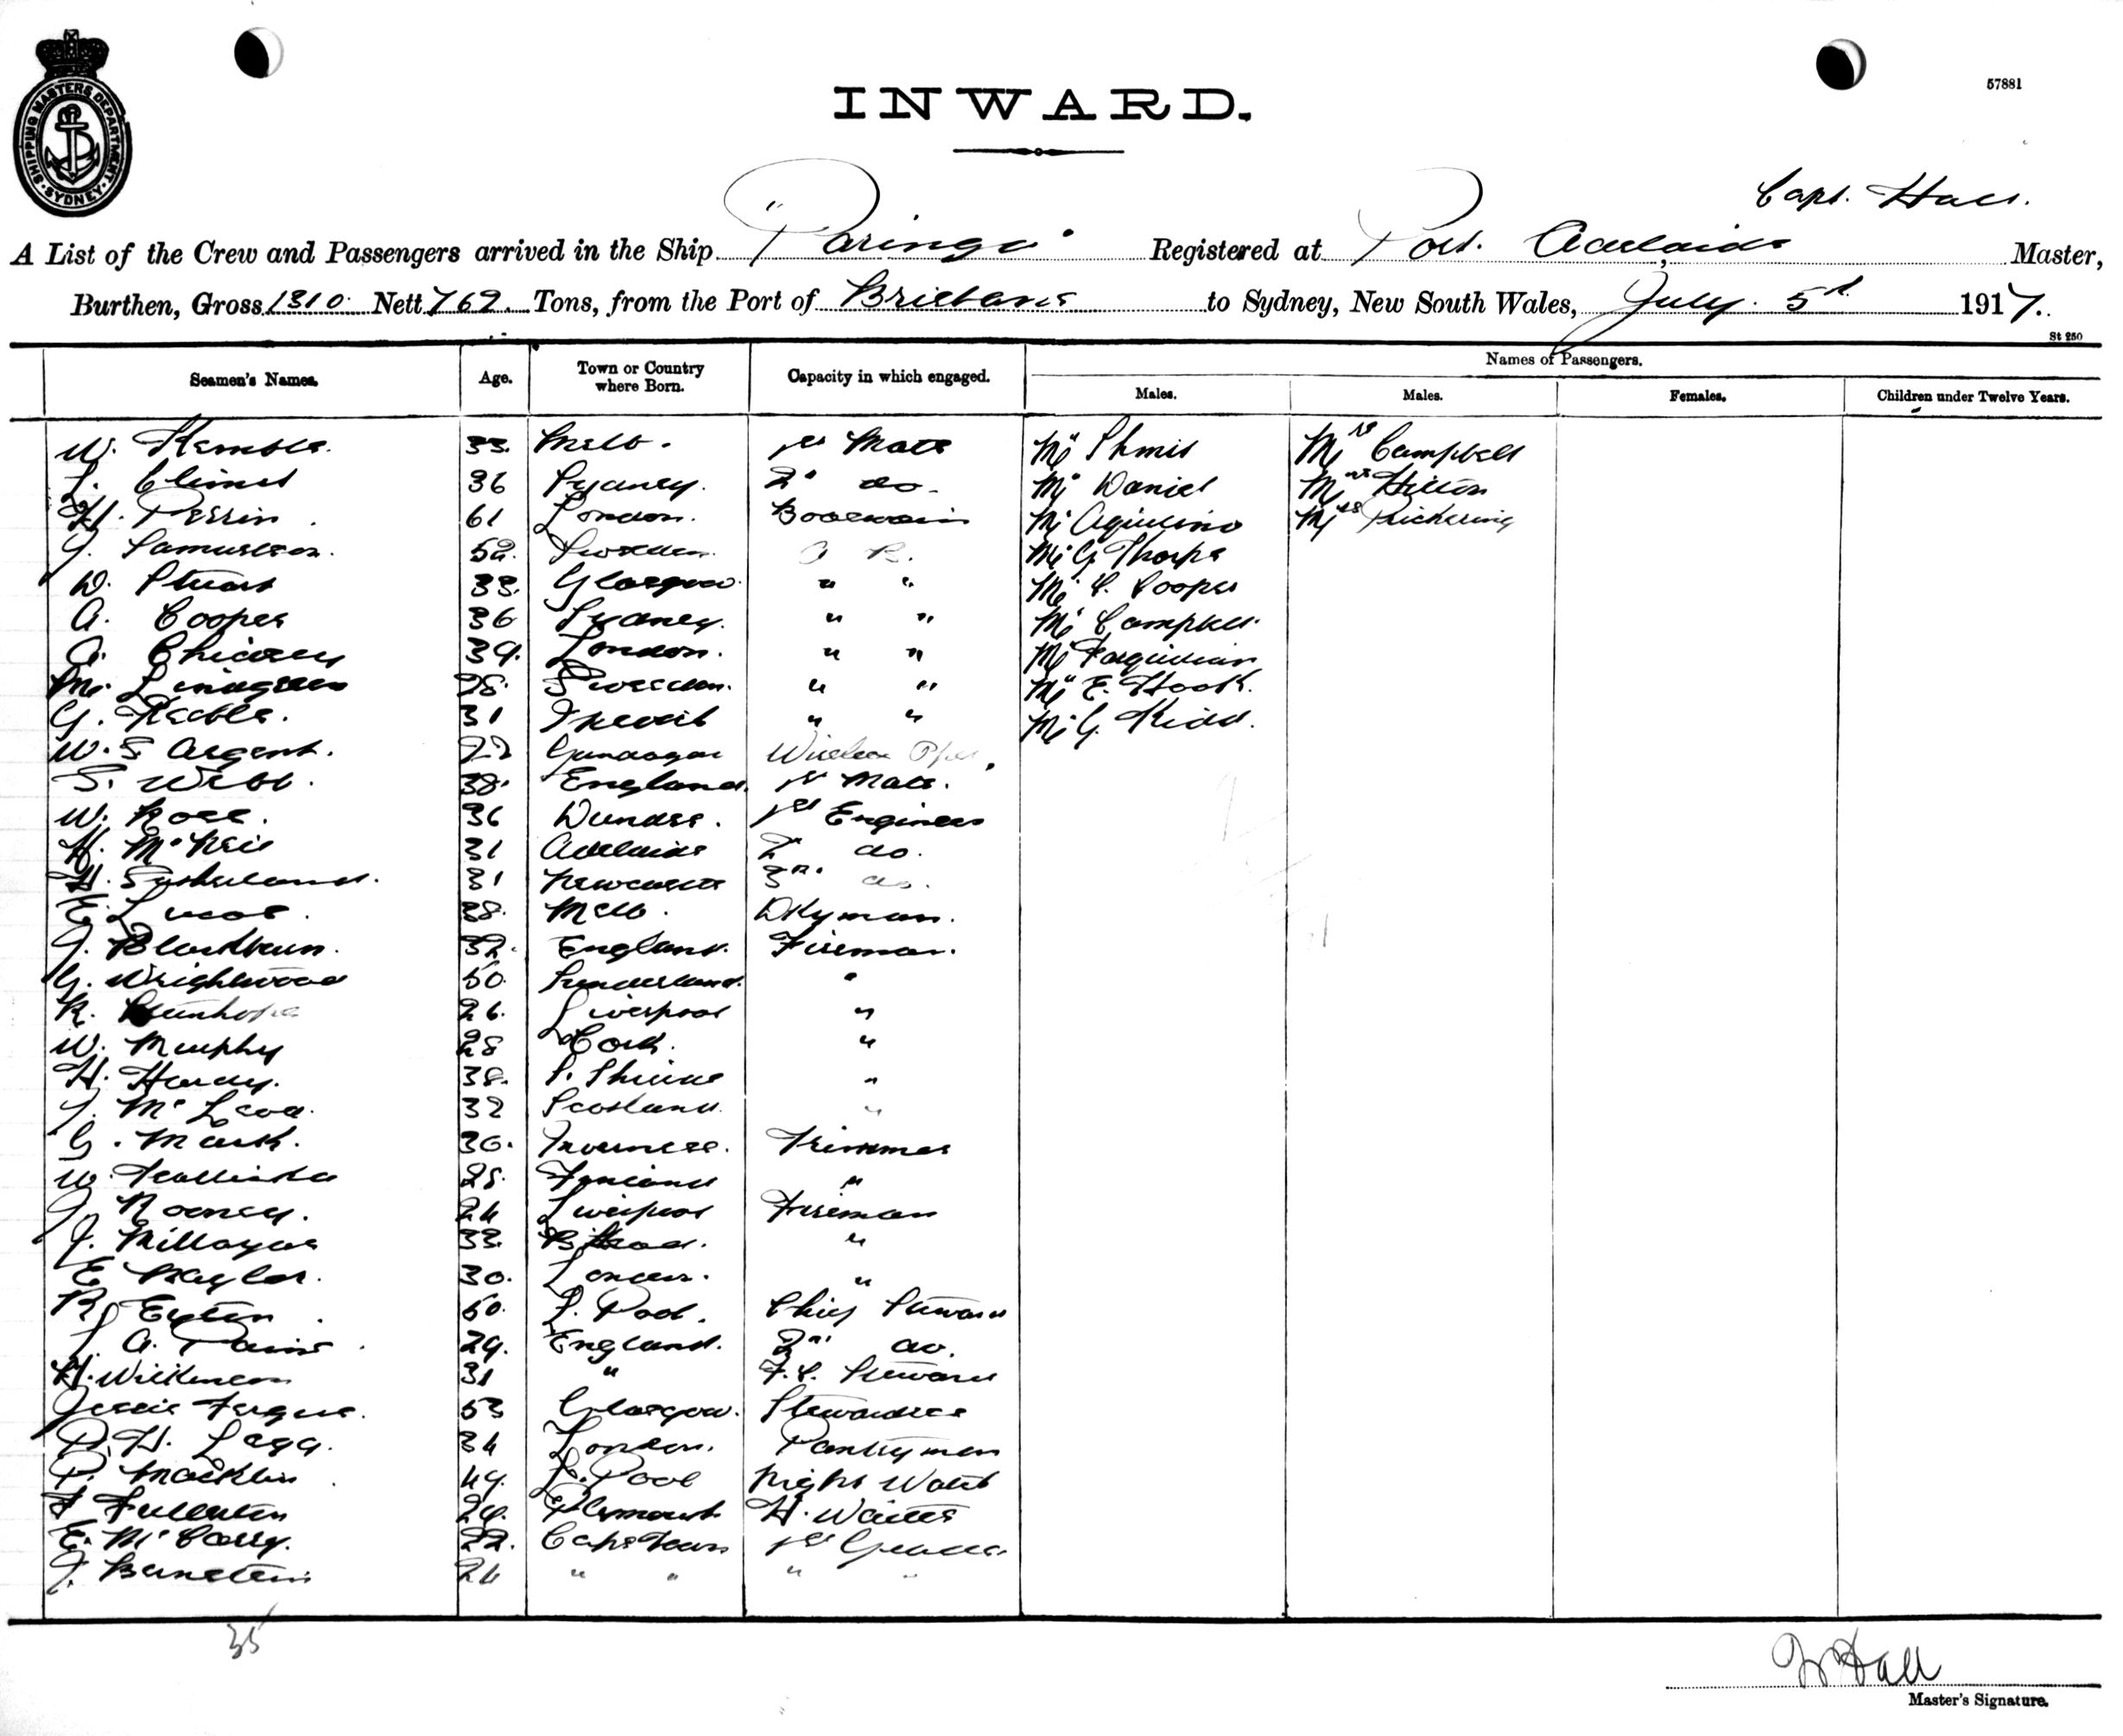 SHIPPING MASTERS DEPARTMENT
SYDNEY
57881
INWARD.
Capt. Hall.
A List of the Crew and Passengers arrived in the Ship "Paringa" Registered at Port Adelaide, Master,
Burthen, Gross 1310 Nett 769 Tons, from the Port of Brisbane to Sydney, New South Wales, July 5th 1917.
St 250
Seamen's Names. Age. Town or Country where Born. Capacity in which engaged. Names of Passengers.
Males. Males. Females. Children under Twelve Years.
W. Kemble. 33. Melb. 1st Mate Mr Mrs Campbell
36 Sydney. 2nd do. Mr Daniel Mrs Hilton
H. Perrin. 61 London. Boatswain Mr Mrs Pickering
J. Samuelson. 52. Sweden. A B. Mr G. Thorpe
D. Stuart 33. Glasgow. " " Mr C. Cooper
A. Cooper 36 Sydney. " " Mr Campbell.
A. 39. London. " " Mr Farquhar
M. Lindgren 28. Sweden. " " Mr E. Hook.
G. Keeble. 31 " " Mr G. Kidd.
W. S. Argent. 22 Gundagai Wireless Opr.
S. Webb. 38. England. 1st Mate.
W. Ross. 36 Dundee. 1st Engineer
H. McNeil 31 Adelaide 2nd do.
H. Sutherland. 31 Newcastle 3rd do.
E. Lucas. 38. Melb. Dkyman.
J. Blackburn. 32. England. Fireman.
G. Wrightwood 50. Sunderland. "
R. Stanhope 26. Liverpool "
W. Murphy 28 Cork. "
H. Hardy. 38. S. Shields "
J. McLeod. 32 Scotland. "
G. Mark. 30. Inverness. Trimmer
W. 28. Finland "
J. Rooney. 24 Liverpool Fireman
J. 33. "
E. Naylor. 30. London. "
R. Eyton. 50. L. Pool. Chief Steward
A. Paine. 29. England. 2nd do.
H. Wilkinson 31 " F.C. Steward
Jessie Fergus. 53 Glasgow. Stewardess
P. H. Lagg. 34 London. Pantryman
P. Macklin. 49. L. Pool Night Watch
F. Fullerton 24. Plymouth H. Waiter
E. McCarry. 22. Cape Town 1st
J. Bernstein 24 " " " "
35
W Hall
Master's Signature.